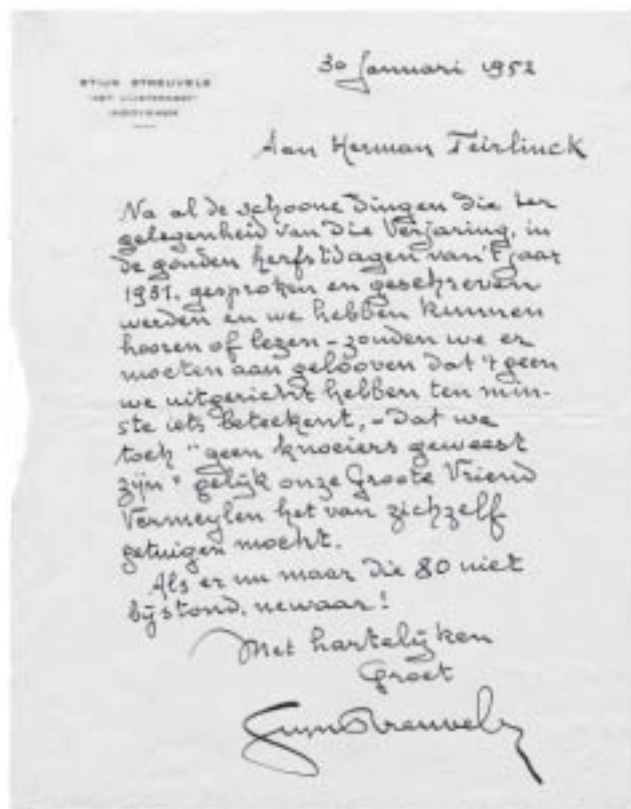 30 Januari 1952
STIJN STREUVELS
"HET LIJSTERNEST"
INGOYGHEM
Aan Herman Teirlinck
Na al de schoone dingen die ter
gelegenheid van die Verjaring, in
de gouden herfstdagen van 't jaar
1951. gesproken en geschreven
werden en we hebben kunnen
hooren of lezen – zouden we er
moeten aan gelooven dat 't geen
we uitgericht hebben ten min-
ste iets beteekent, – dat we
toch "geen knoeiers geweest
zijn" gelijk onze Groote Vriend
Vermeylen het van zichzelf
getuigen mocht.
Als er nu maar die 80 niet
bijstond, newaar!
Met hartelijken
Groet
Stijn Streuvels